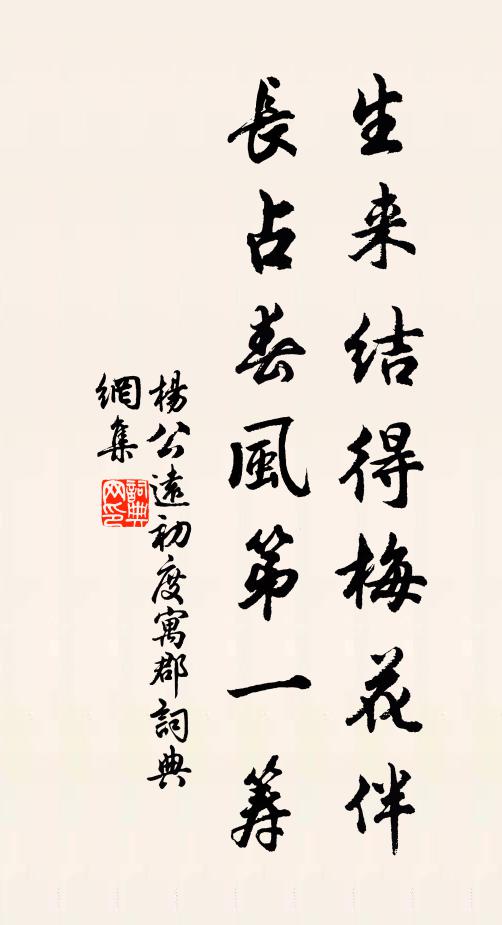 生来结得梅花伴
長占春風第一筹
楊公遠初度寓郡詞典
網集
詞典
网印